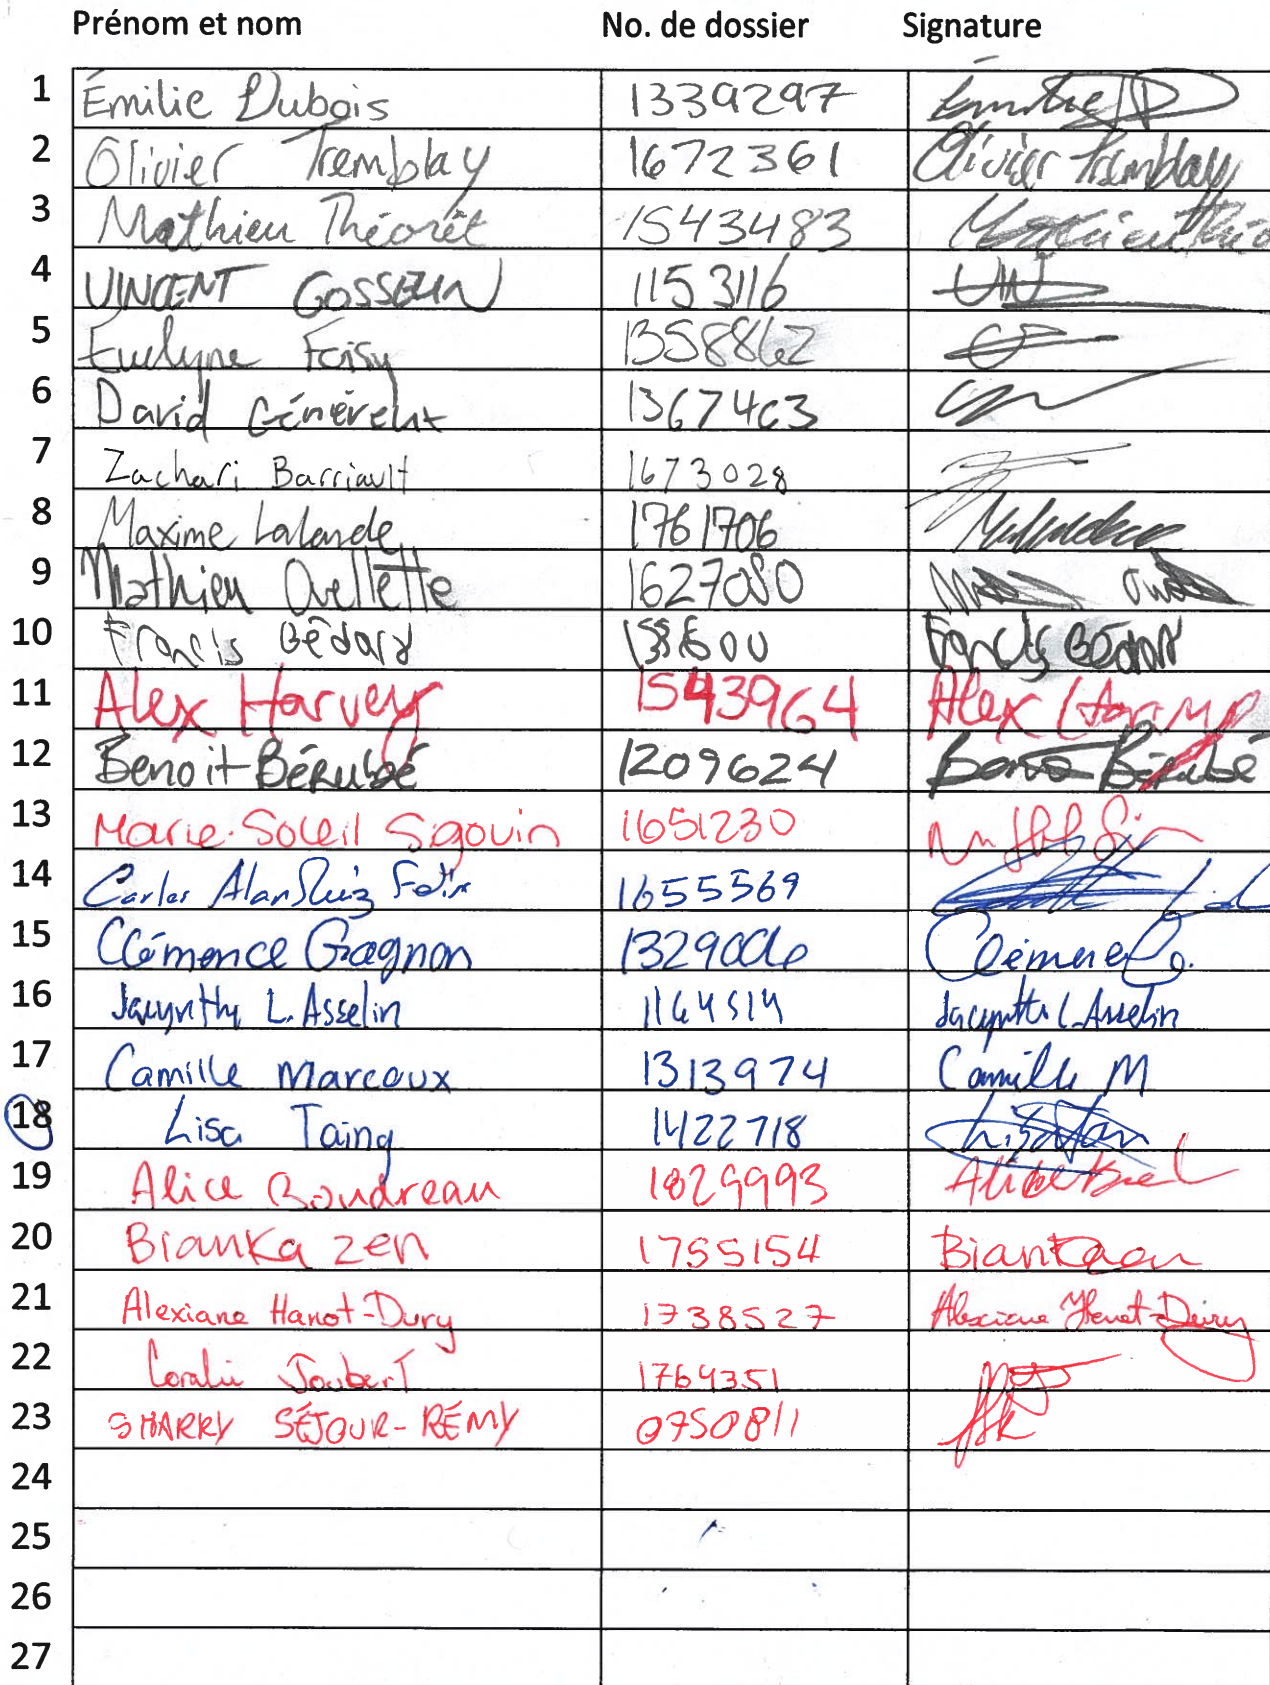 Prénom et nom No. de dossier Signature
1 Émilie Dubois 1339297 Émilie D
2 Olivier Tremblay 1672361 Olivier Tremblay
3 Mathieu Théorêt 1543483 Mathieu Théo
4 VINCENT GOSSELIN 1153116 VIN
5 Evelyne Foisy 1358862
6 David Généreux 1367463
7 Zachari Barriault 1673028
8 Maxime Lalande 1761706
9 Mathieu Ouellette 1627080
10 Francis Bédard Francis BÉDARD
11 Alex Harvey 1543964 Alex Harvey
12 Benoit Bérubé 1209624 Benoit Bérubé
13 Marie-Soleil Sigouin 1651230
14 Carlos Alan Ruiz 1655569
15 Clémence Gagnon 1329006 Clémence G.
16 Jacynthe L. Asselin 1164514 Jacynthe L. Asselin
17 Camille Marcoux 1313974 Camille M
18 Lisa Taing 1422718
19 Alice Boudreau 1829993
20 Bianka zen 1755154 Bianka zen
21 Alexiane Hanot-Dury 1738527 Alexiane Hanot-Dury
22 Coralie Joubert 1764351
23 SHARRY SÉJOUR-RÉMY 0750811
24
25
26
27